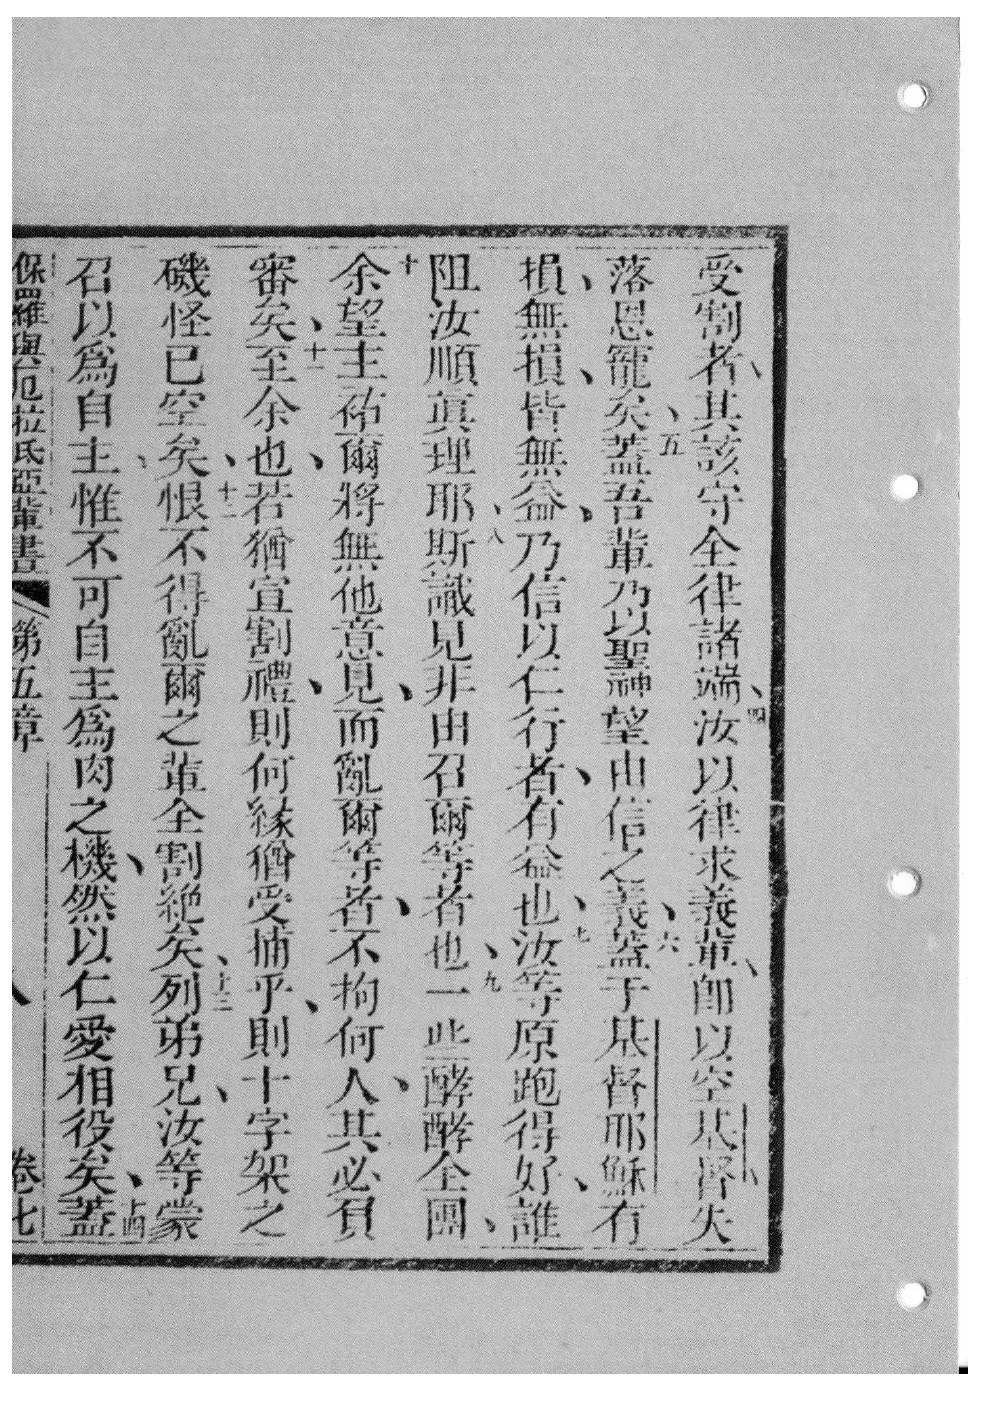 受割者、其該守全律諸端、四汝以律求義輩、即以空基督、失
落恩寵矣、五蓋吾輩乃以聖神望由信之義、六蓋于基督耶穌有
損、無損、皆無益、乃信以仁行者、有益也、七汝等原跑得好、誰
阻汝順眞理耶、八斯識見非由召爾等者也、九一些酵酵全團、
十余望主祐爾將無他意見、而亂爾等者、不拘何人、其必負
審矣、十一至余也、若猶宣割禮、則何緣猶受捕乎、則十字架之
磯怪已空矣、十二恨不得亂爾之輩全割絶矣、十三列弟兄、汝等蒙
召以爲自主、惟不可自主爲肉之機、然以仁愛相役矣、十四蓋
保羅與厄拉氏亞輩書 第五章 卷七